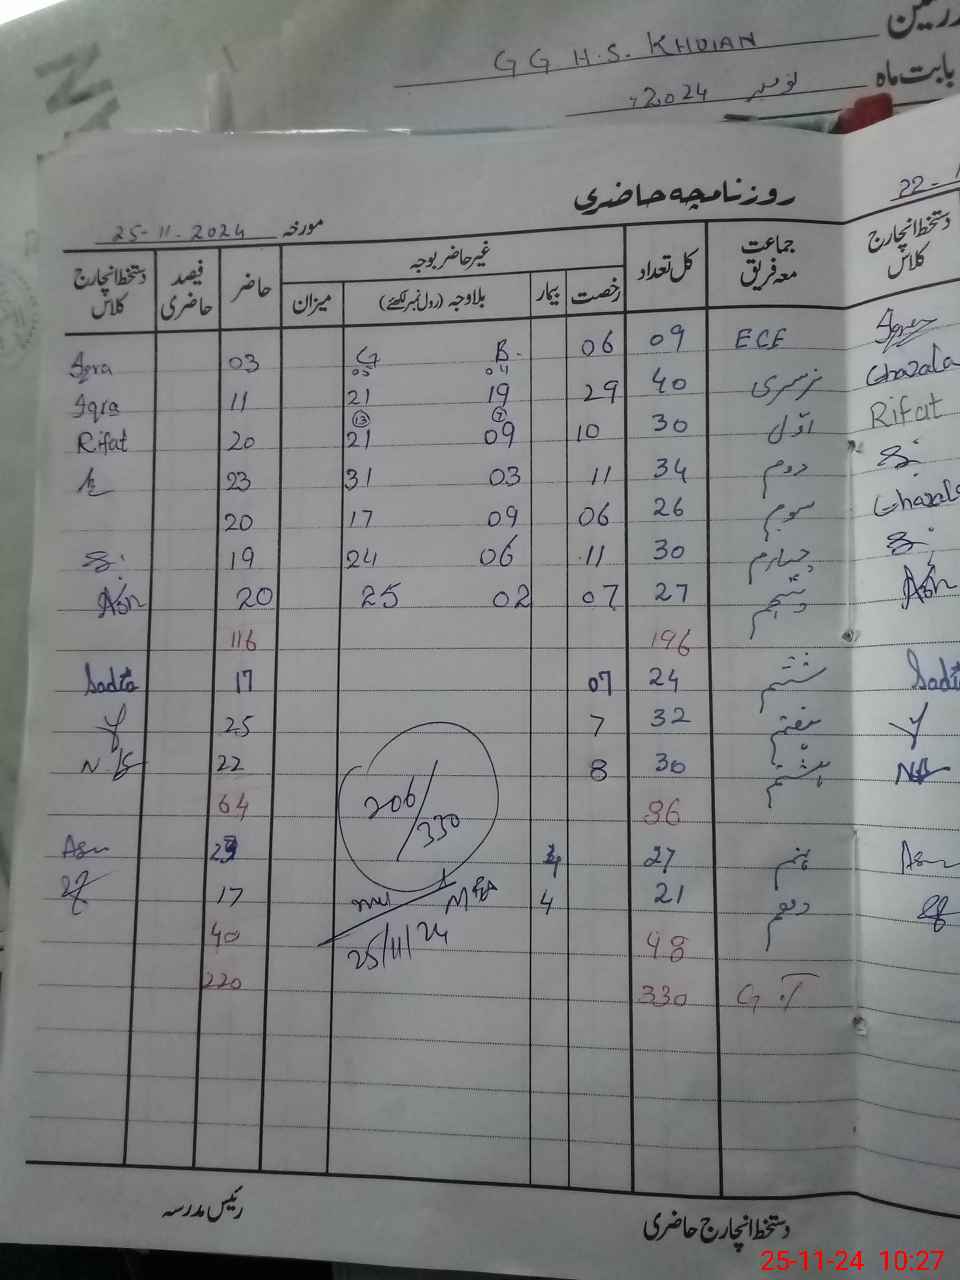 درسین G G H.S. KHUIAN
بابت ماہ نومبر 2024ء
روزنامچہ حاضری
مورخہ 25-11-2024
22-1
جماعت معہ فریق کل تعداد غیر حاضر بوجہ حاضر فیصد حاضری دستخط انچارج کلاس دستخط انچارج کلاس
رخصت بیمار بلاوجہ (رول نمبر لکھئے) میزان
ECE 09 06 B. G 03 Iqra
نرسری 40 29 04 19 05 21 11 Iqra Ghazala
اوّل 30 10 7 09 13 21 20 Rifat Rifat
دوم 34 11 03 31 23
سوم 26 06 09 17 20 Ghazala
چہارم 30 11 06 24 19
پنجم 27 07 02 25 20 Asn Asn
196 116
ششم 24 07 17 Sadia Sadia
ہفتم 32 7 25
ہشتم 30 8 22
86 64
206/330
نہم 27 4 23 Asn Asn
دہم 21 4 17
48 40
25/11/24
G.T 330 220
دستخط انچارج حاضری رئیس مدرسہ
25-11-24 10:27